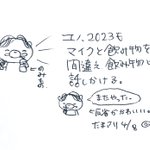 ユノ、2023も
マイクと飲み物を
間違え飲み物に
話しかける。
またやった。
反省かわいい。
たまアリ4/8
のみもの